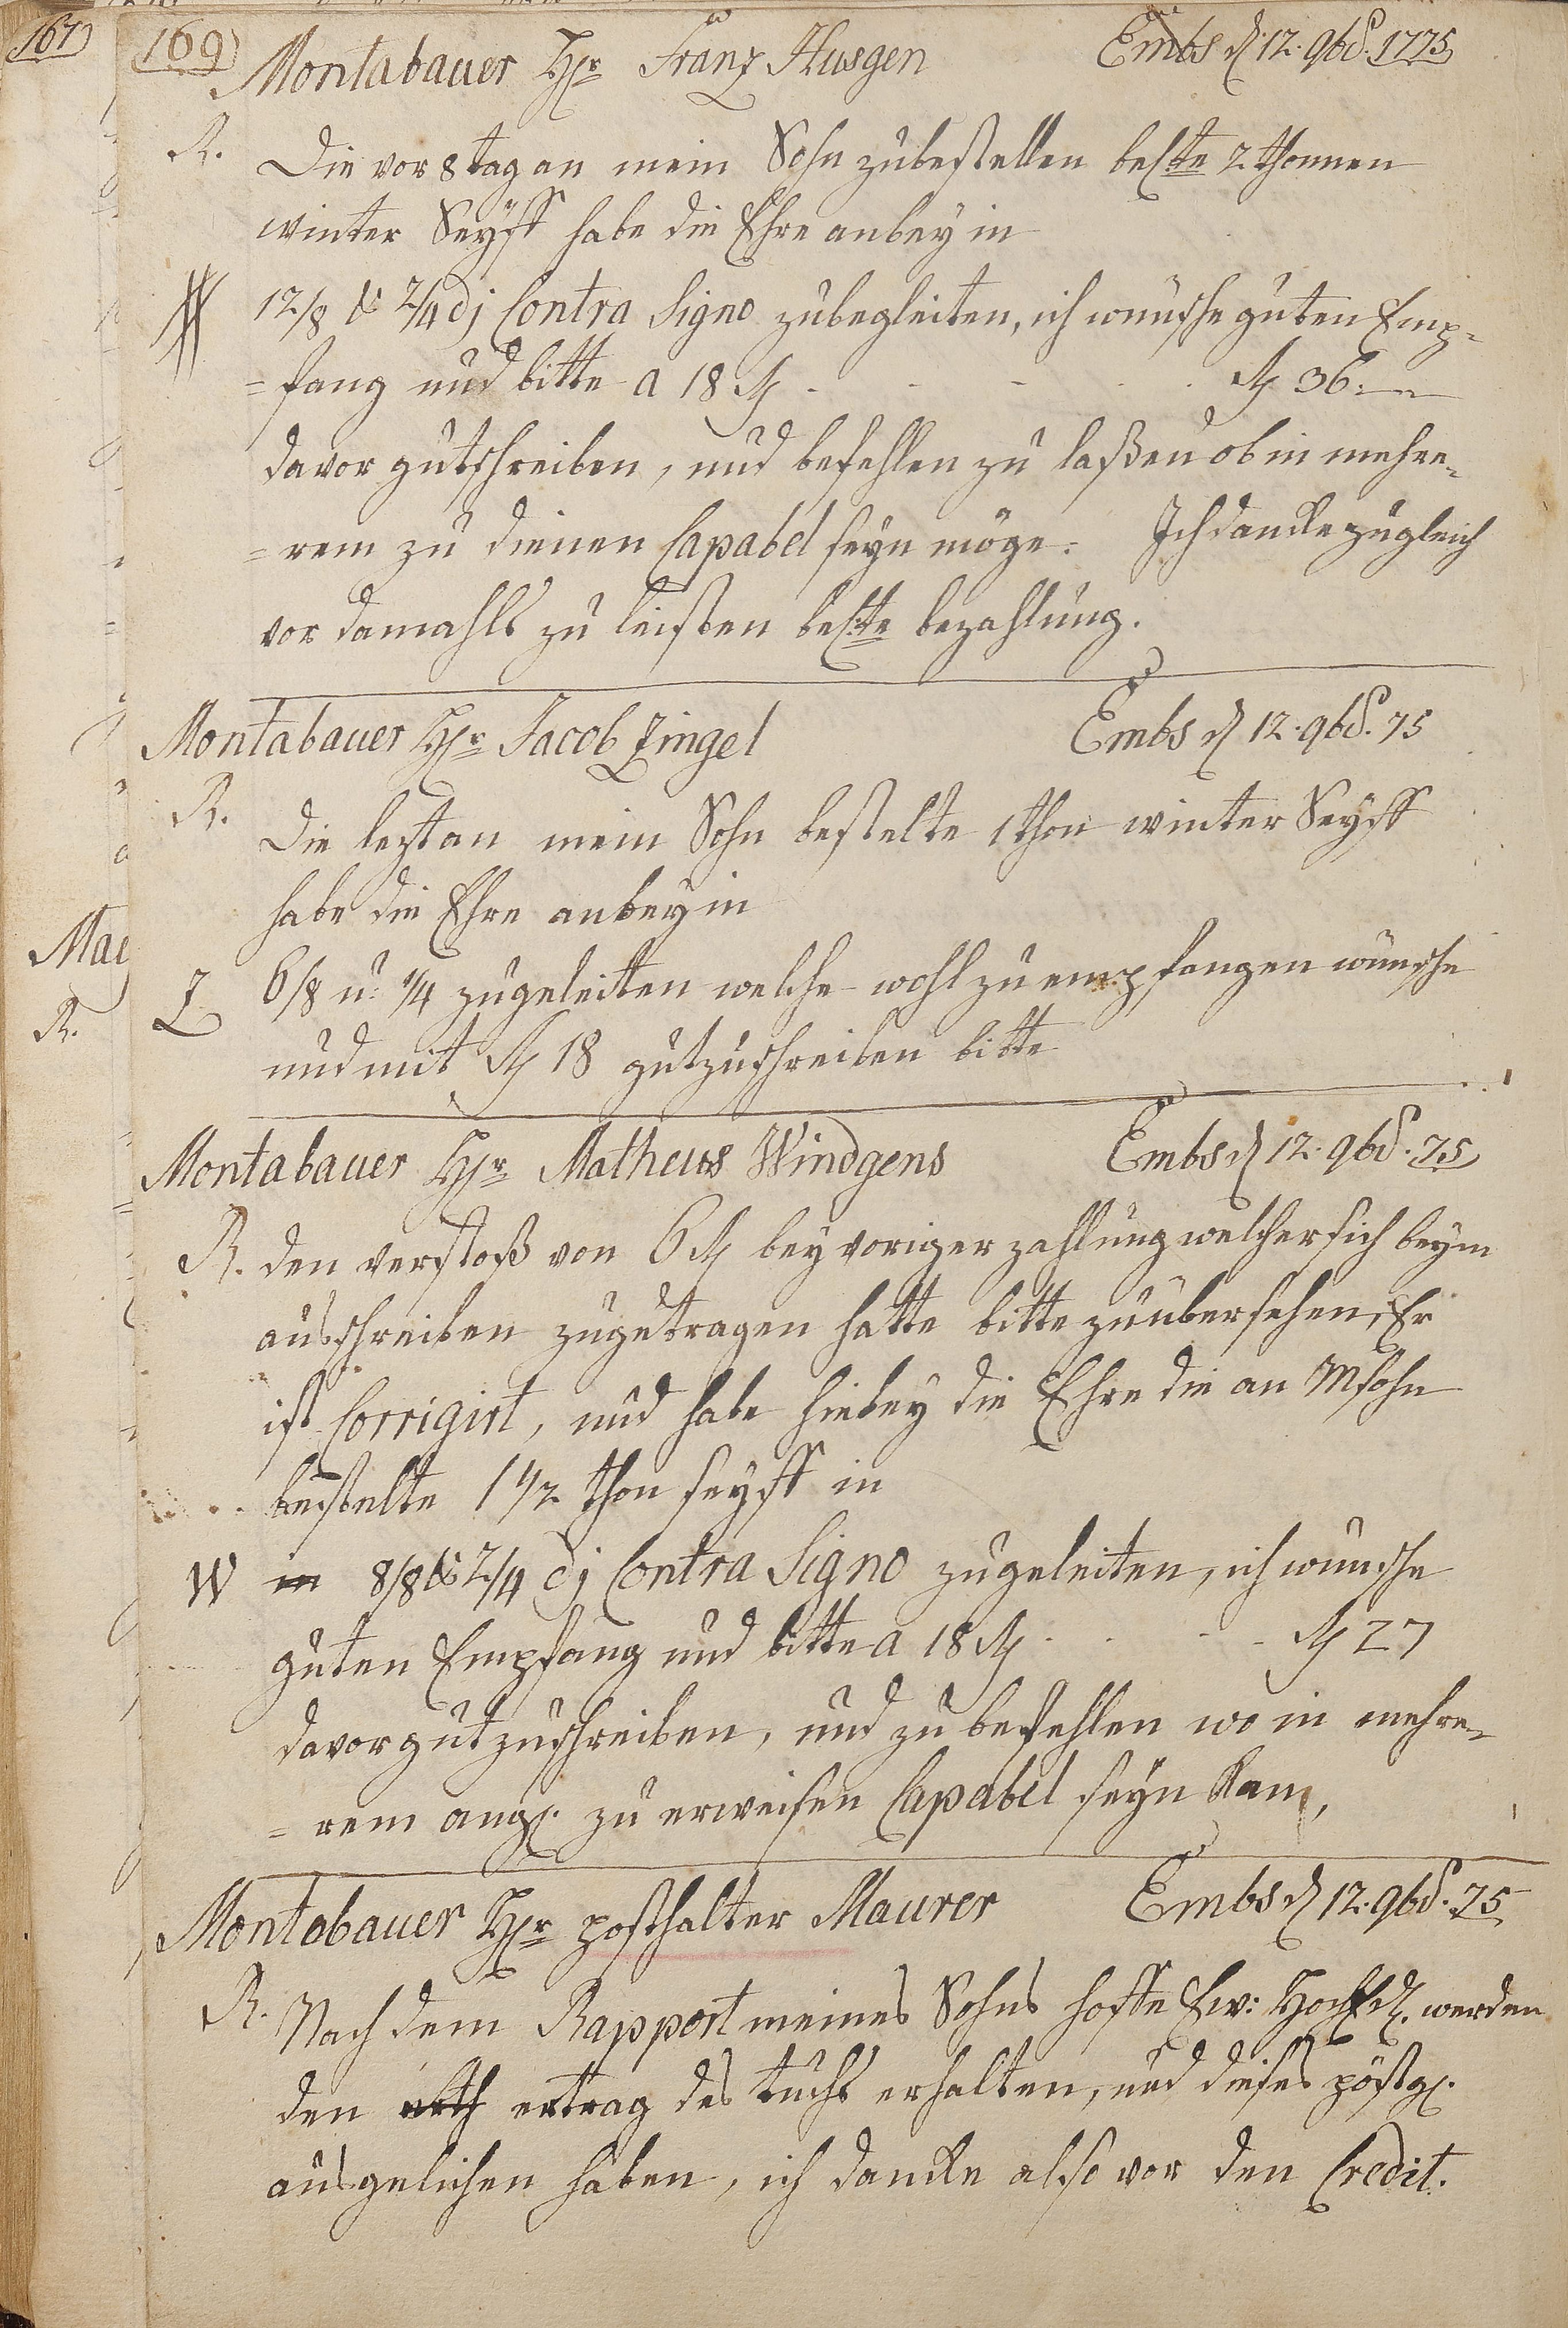 167
169
Montabauer Hr Franz Husgen Embs d. 12. 9bs. 1775
R. Die vor 8 tag an mein Sohn zubestellen bel:te 2 thonnen
winter Seyff habe die Ehre anbey in
12/8 & 2/4 dj Contra Signo zubegleiten, ich wünsche guten Emp=
=fang und bitte a 18 Rth Rth 36.
davor gutschreiben, und befehlen zu laßen ob in mehre=
=rem zu dienen Capabel seyn möge. Ich dancke zugleich
vor damahls zu leisten bel:te bezahlung.
Montabauer Hr Jacob Zingel Embs d 12. 9bs. 75
R. Die lezt an mein Sohn bestelte 1 thon winter Seyff
habe die Ehre anbey in
Z 6/8 u: 1/4 zugeleiten welche wohl zu empfangen wünsche
und mit Rth 18 gutzuschreiben bitte
Montabauer Hr Matheus Windgens Embs d 12. 9bs. 75
R. den verstoß von 6 Rth bey voriger zahlung welcher sich beym
ausschreiben zugetragen hatte bitte zu übersehen, Er
ist Corrigirt, und habe hiebey die Ehre die an M Sohn
bestelte 1 1/2 thon seyff in
W in 8/8 & 2/4 dj Contra Signo zugeleiten, ich wünsche
guten Empfang und bitte a 18 Rth Rth 27
davor gutzuschreiben, und zu befehlen wo in mehre=
=rem angl. zu erweisen Capabel seyn kan,
Montabauer Hr posthalter Maurer Embs d 12. 9bs. 75
R. Nach dem Rapport meines Sohns hoffe Ew: HochEd. werden
den ertrag des tuchs erhalten, und dieses
ausgelichen haben, ich dancke also vor den Credit.
Mae
R.